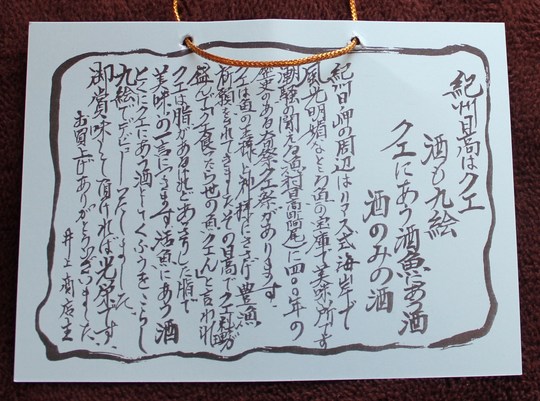 紀州日高はクエ
酒も九絵
クエにあう酒魚にあう酒
酒のみの酒
紀州日ノ岬の周辺はリアス式海岸で
風光明媚なところ魚の宝庫で美味所です
潮騒の聞える漁村日高町阿尾に四〇〇年の
歴史のある奇祭クエ祭があります。
クエは魚の王様と神様にささげ豊漁
祈願をされてきましたその日高でクエ料理が
盛んでクエ食ったら世の魚クエんと言われ
クエは脂があるけれどあっさりした脂で
美味の一言につきます活魚にあう酒
とくにクエにあう酒とさくふうをこらし
九絵でデビューいたしました。
御賞味をして頂ければ光栄です。
お買上ありがとうございました。
井上商店主